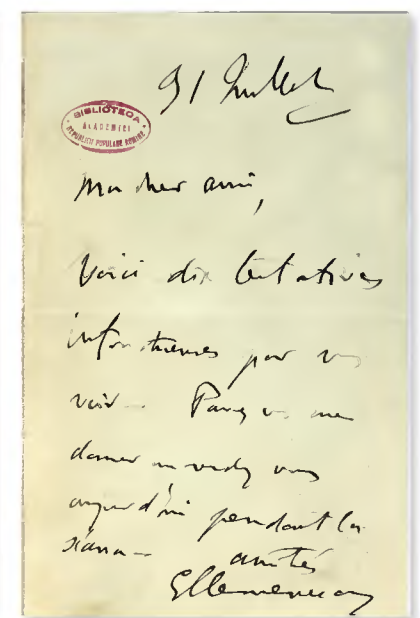 31 Juillet
BIBLIOTECA
ACADEMIEI
REPUBLICII POPULARE ROMÎNE
Mon cher ami,
Voici dix tentatives
infructueuses pour vous
voir. Pouvez vous me
donner un rendez vous
aujourd'hui pendant la
séance
amitiés
GClemenceau